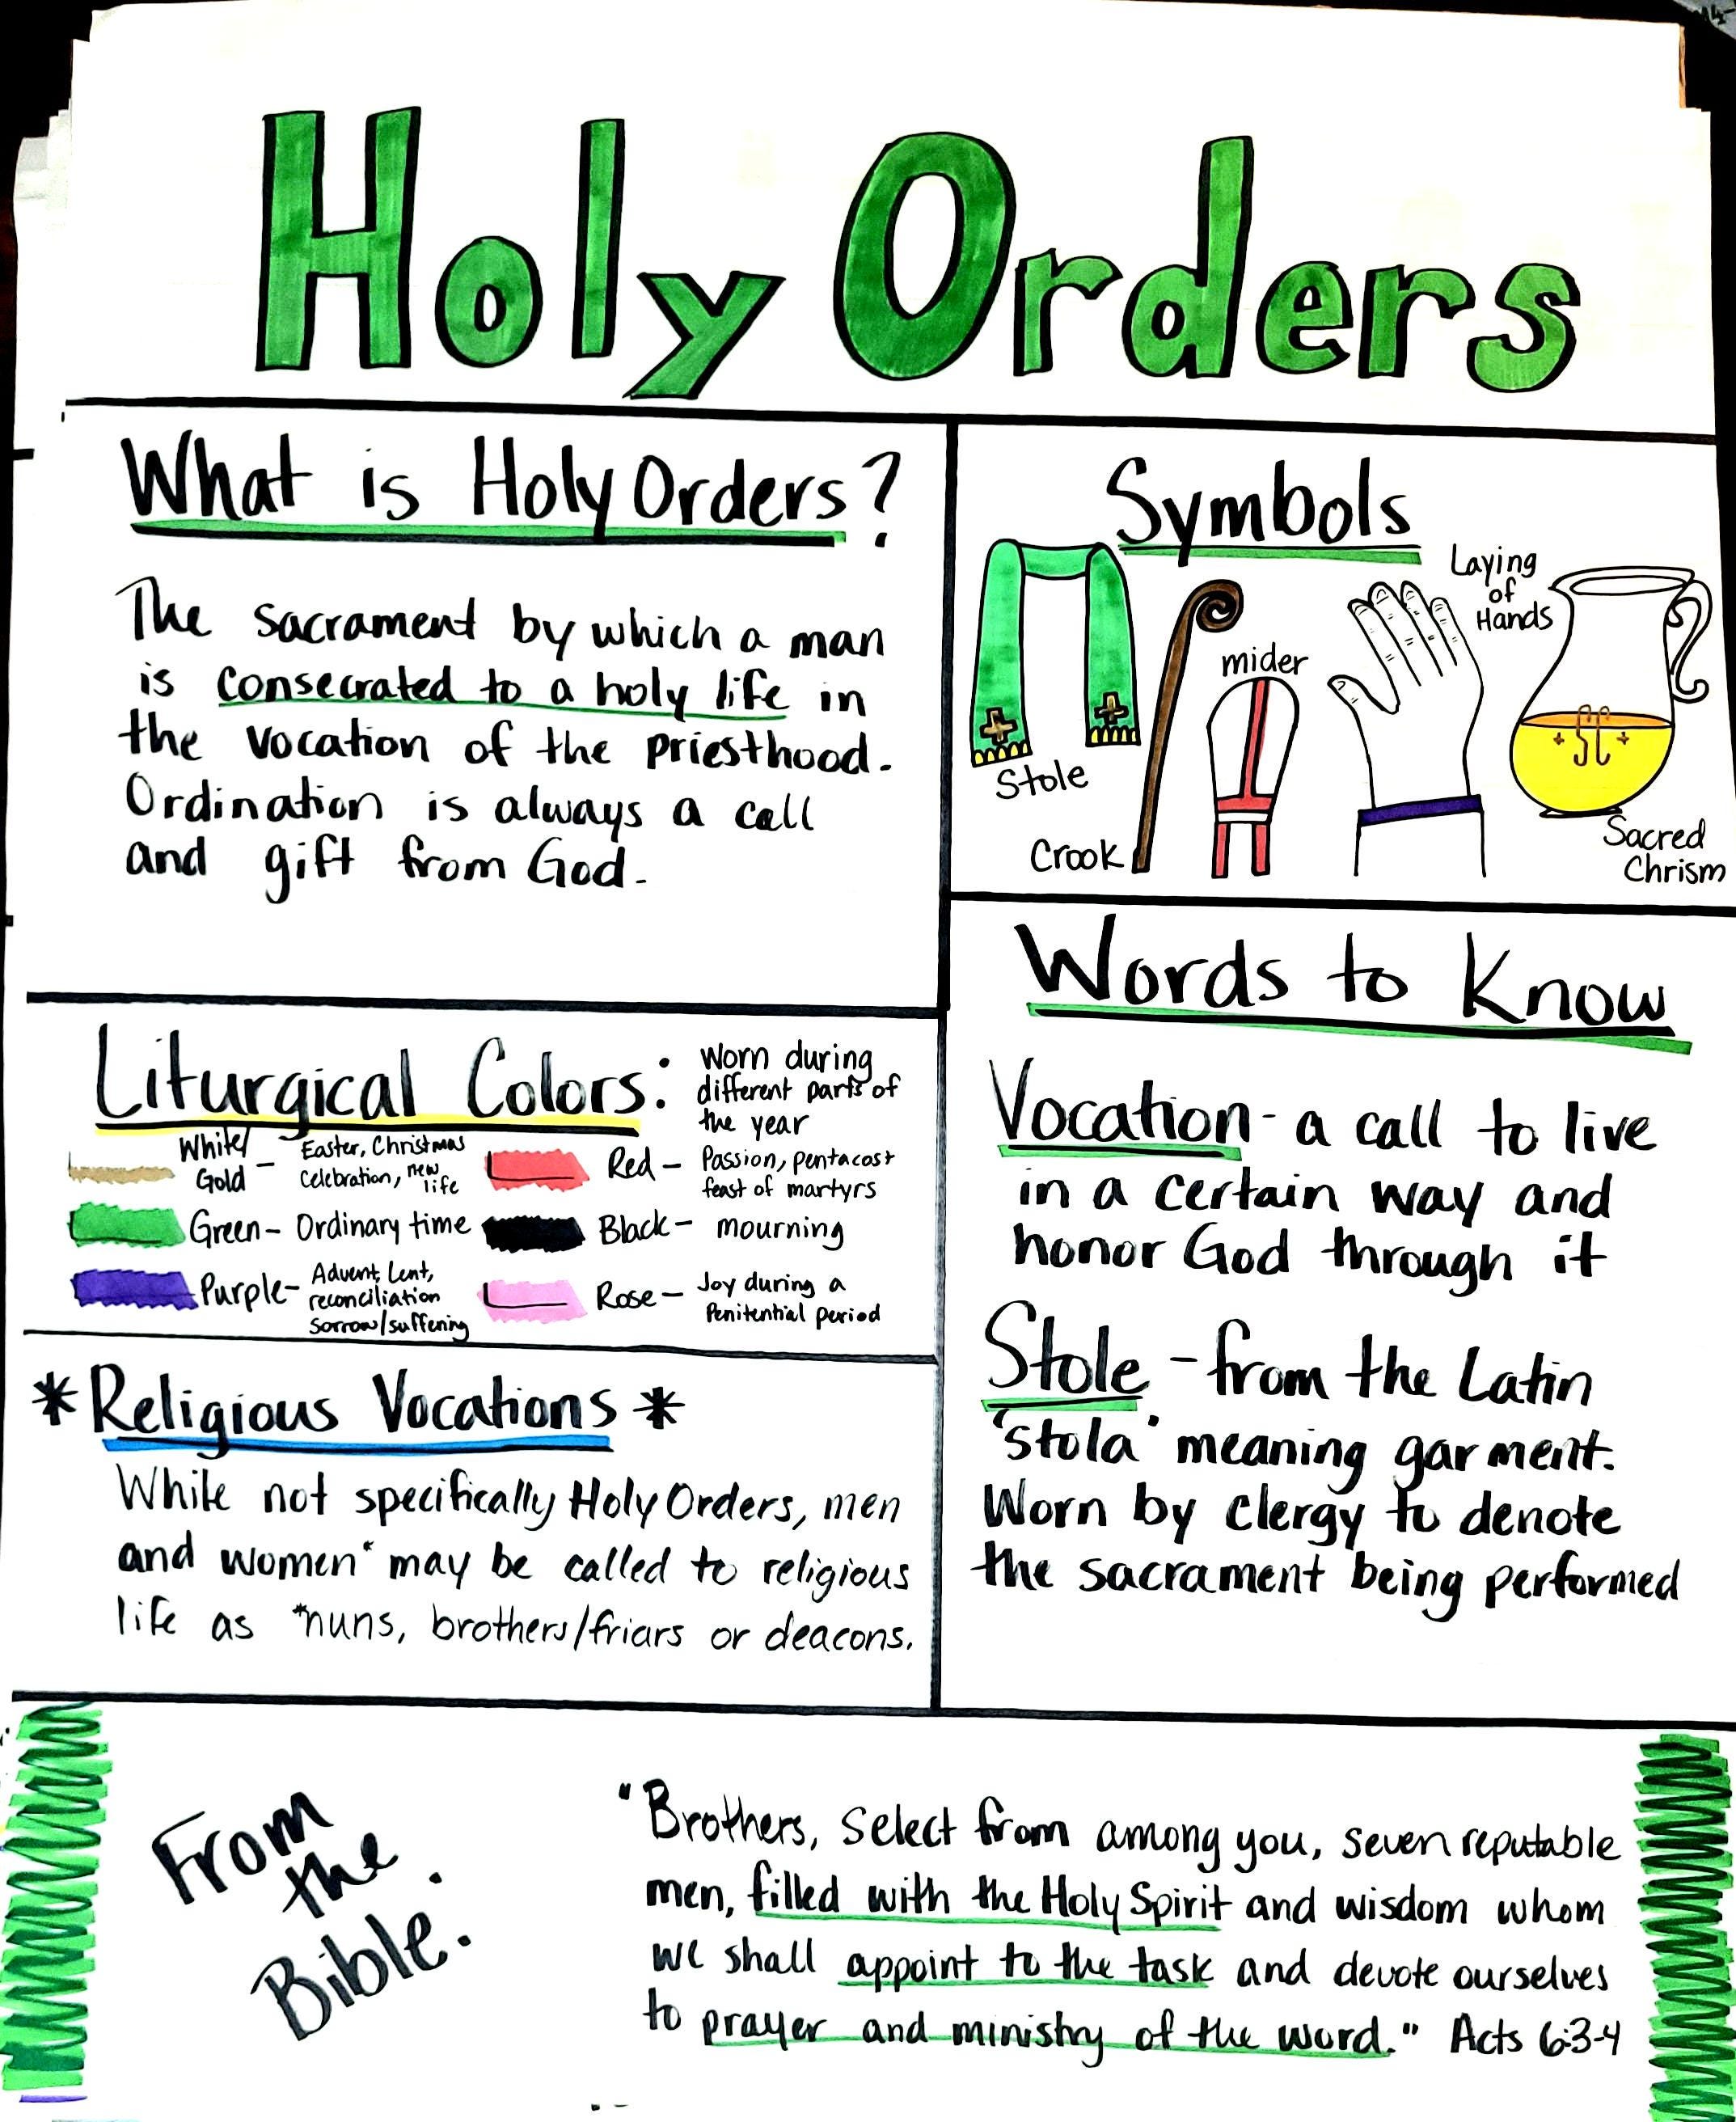 Holy Orders
What is Holy Orders?
The sacrament by which a man
is consecrated to a holy life in
the vocation of the priesthood.
Ordination is always a call
and gift from God.
Symbols
Stole
Crook
mider
Laying
of
Hands
SC
Sacred
Chrism
Liturgical Colors:
Worn during
different parts of
the year
White/
Gold -
Easter, Christmas
Celebration, new
life
Green- Ordinary time
Purple-
Advent, Lent,
reconciliation
Sorrow/suffering
Red -
Passion, pentacost
feast of martyrs
Black - mourning
Rose -
Joy during a
Penitential period
Words to Know
Vocation - a call to live
in a certain way and
honor God through it
Stole - from the Latin
'stola' meaning garment.
Worn by clergy to denote
the sacrament being performed
*Religious Vocations*
While not specifically Holy Orders, men
and women* may be called to religious
life as *nuns, brothers/friars or deacons.
From
the
Bible.
"Brothers, select from among you, seven reputable
men, filled with the Holy Spirit and wisdom whom
we shall appoint to the task and devote ourselves
to prayer and ministry of the word." Acts 6:3-4